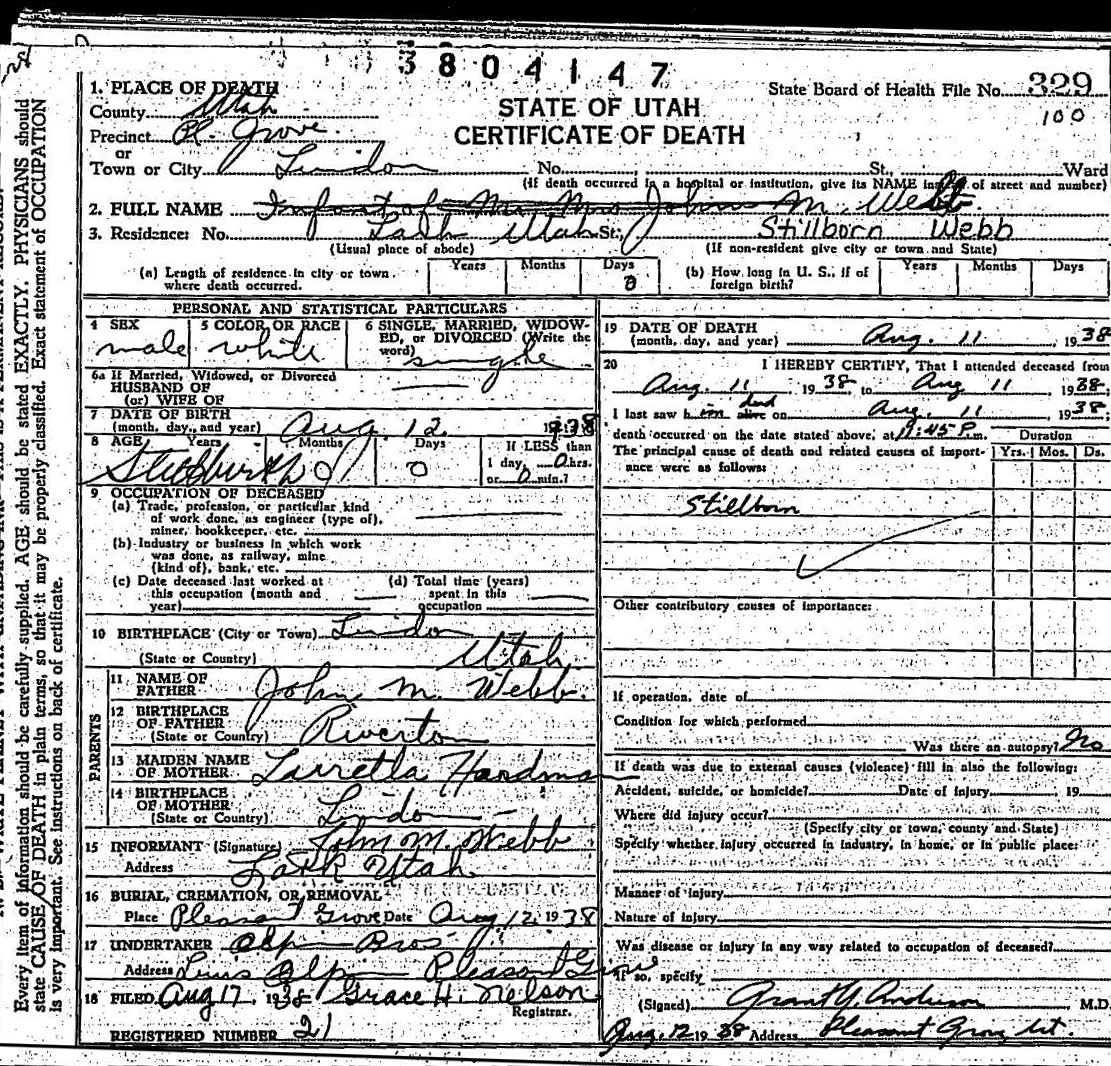 3804147
1. PLACE OF DEATH
County Utah
Precinct Pl. Grove
or
Town or City Lindon No. St., Ward
(If death occurred in a hospital or institution, give its NAME of street and number)
STATE OF UTAH
CERTIFICATE OF DEATH
State Board of Health File No. 329
100
2. FULL NAME Infant of Mr Mrs John M. Webb.
3. Residence: No. Lark Utah St. Stillborn Webb
(Usual place of abode) (If non-resident give city or town and State)
(a) Length of residence in city or town where death occurred. Years Months Days 0
(b) How long in U. S., if of foreign birth? Years Months Days
PERSONAL AND STATISTICAL PARTICULARS
4 SEX male
5 COLOR OR RACE white
6 SINGLE, MARRIED, WIDOWED, or DIVORCED (Write the word) single
6a If Married, Widowed, or Divorced
HUSBAND OF
(or) WIFE OF
7 DATE OF BIRTH
(month, day, and year) Aug. 12. 1938
8 AGE Years Months Days If LESS than
Stillbirth 0 1 day, 0 hrs.
or 0 min.?
9 OCCUPATION OF DECEASED
(a) Trade, profession, or particular kind
of work done, as engineer (type of),
miner, bookkeeper, etc.
(b) Industry or business in which work
was done, as railway, mine
(kind of), bank, etc.
(c) Date deceased last worked at
this occupation (month and
year)
(d) Total time (years)
spent in this
occupation
10 BIRTHPLACE (City or Town) Lindon
(State or Country) Utah
PARENTS
11 NAME OF
FATHER John M. Webb.
12 BIRTHPLACE
OF FATHER
(State or Country) Riverton
13 MAIDEN NAME
OF MOTHER Hardman
14 BIRTHPLACE
OF MOTHER
(State or Country) Lindon
15 INFORMANT (Signature) John M. Webb
Address Lark Utah
16 BURIAL, CREMATION, OR REMOVAL
Place Pleasant Grove Date Aug 12. 1938
17 UNDERTAKER Olpin Bros
Address Olpin Pleasant Grove
18 FILED Aug 17, 1938 Grace H. Nelson
Registrar.
REGISTERED NUMBER 21
19 DATE OF DEATH
(month, day, and year) Aug. 11 1938
20 I HEREBY CERTIFY, That I attended deceased from
Aug. 11 1938 to Aug 11 1938.
I last saw him alive dead on Aug. 11 1938,
death occurred on the date stated above, at 11:45 P.m.
The principal cause of death and related causes of importance were as follows:
Duration
Yrs. Mos. Ds.
Stillborn
Other contributory causes of importance:
If operation, date of
Condition for which performed
Was there an autopsy? No
If death was due to external causes (violence) fill in also the following:
Accident, suicide, or homicide? Date of injury 19
Where did injury occur?
(Specify city or town, county and State)
Specify whether injury occurred in industry, in home, or in public place:
Manner of injury
Nature of injury
Was disease or injury in any way related to occupation of deceased?
If so, specify
(Signed) Grant Y. Anderson M.D.
Aug. 12 1938 Address Pleasant Grove Ut.
Every item of information should be carefully supplied. AGE should be stated EXACTLY. PHYSICIANS should
state CAUSE OF DEATH in plain terms, so that it may be properly classified. Exact statement of OCCUPATION
is very important. See instructions on back of certificate.